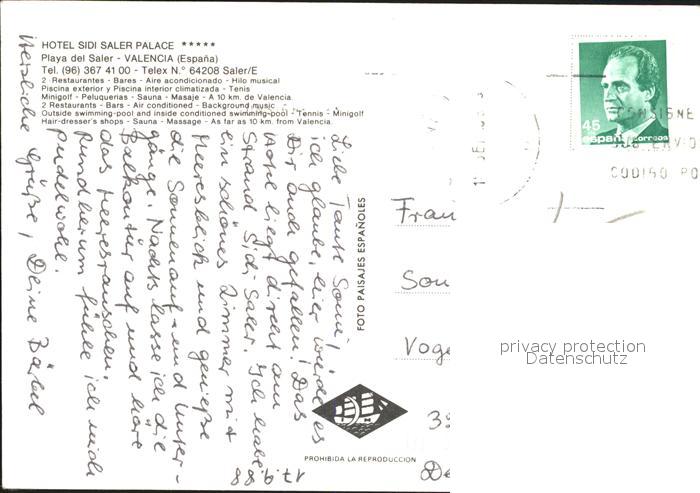 HOTEL SIDI SALER PALACE *****
Playa del Saler - VALENCIA (España)
Tel. (96) 367 41 00 - Telex N.° 64208 Saler/E
2 Restaurantes - Bares - Aire acondicionado - Hilo musical
Piscina exterior y Piscina interior climatizada - Tenis
Minigolf - Peluquerias - Sauna - Masaje - A 10 km. de Valencia.
2 Restaurants - Bars - Air conditioned - Background music
Outside swimming-pool and inside conditioned swimming-pool - Tennis - Minigolf
Hair-dresser's shops - Sauna - Massage - As far as 10 km. from Valencia.
17.9.88
Liebe Tante Sonni,
ich glaube, hier würde es
Dir auch gefallen! Das
Hotel liegt direkt am
Strand Sidi Saler. Ich habe
ein schönes Zimmer mit
Meeresblick und genieße
die Sonnenauf- und Unter-
gänge. Nachts lasse ich die
Balkontür auf und höre
das Meeresrauschen.
Rundherum fühle ich mich
pudelwohl.
Herzliche Grüße, Deine Bärbel
FOTO PAISAJES ESPAÑOLES
PROHIBIDA LA REPRODUCCION
45
españa correos
CONSIGNE
ENVIO
CODIGO PO
Frau
Son
Voge
privacy protection
Datenschutz